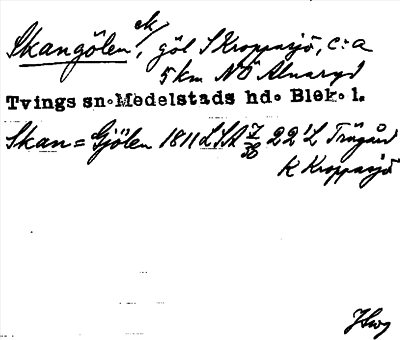 Skangölen ek/, göl S Kroppasjö, c:a
5 km NÖ Alnaryd
Tvings sn. Medelstads hd. Blek. l.
Skan = Gjölen 1811 LSA 22 L Trägård
K Kroppasjö